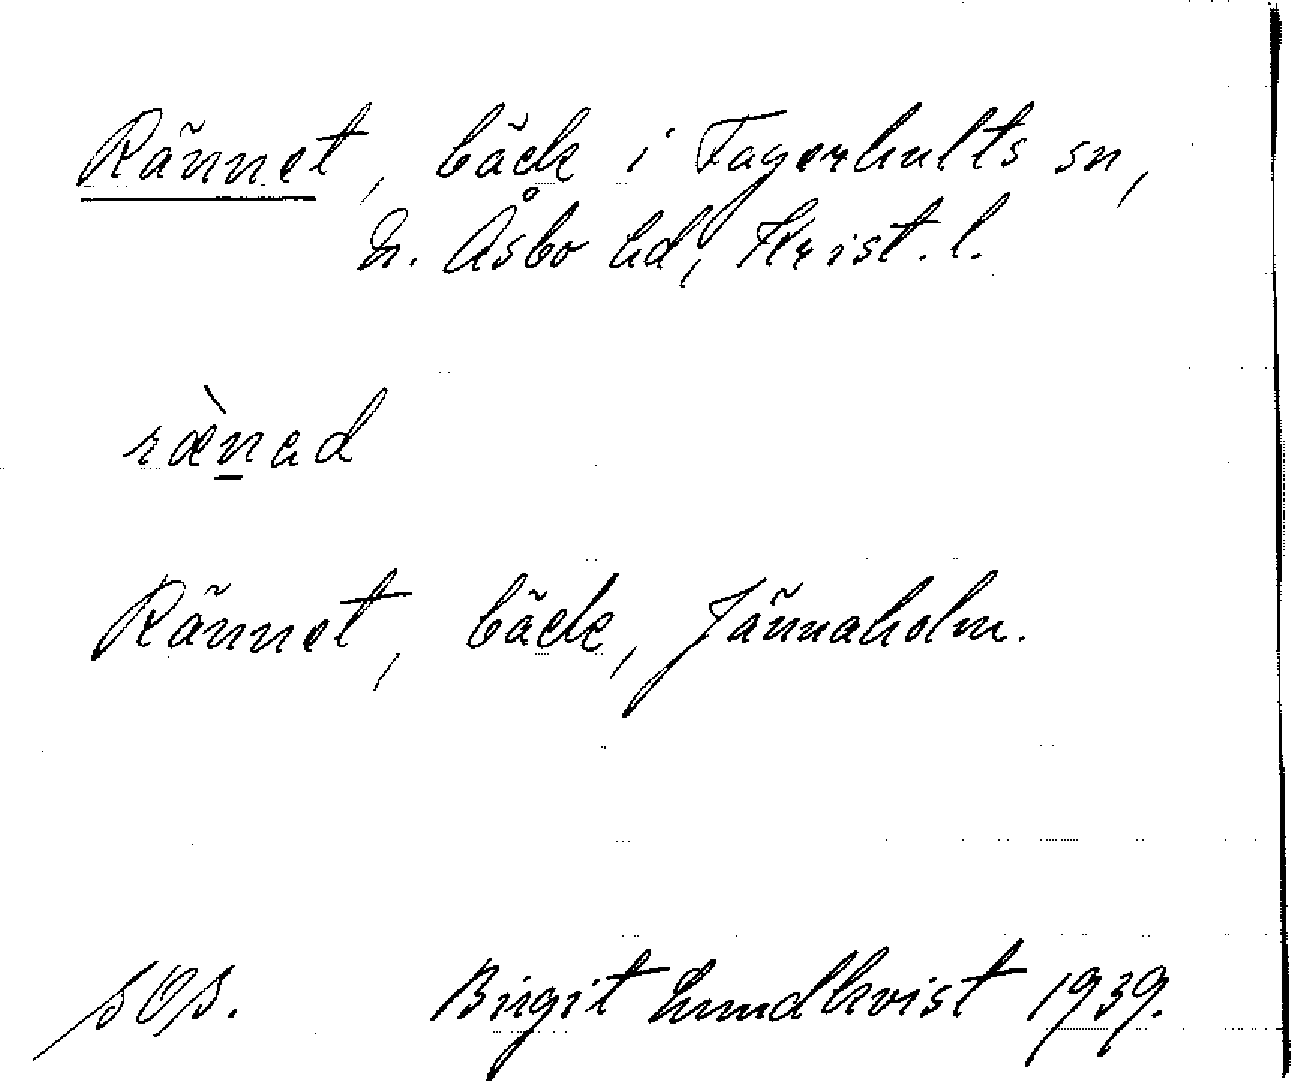 Rännet, bäck i Fagerhults sn,
N. Åsbo hd, Krist. l.
ræ̀n̲ad
Rännet, bäck, Jännaholm.
sOs. Birgit Lundkvist 1939.